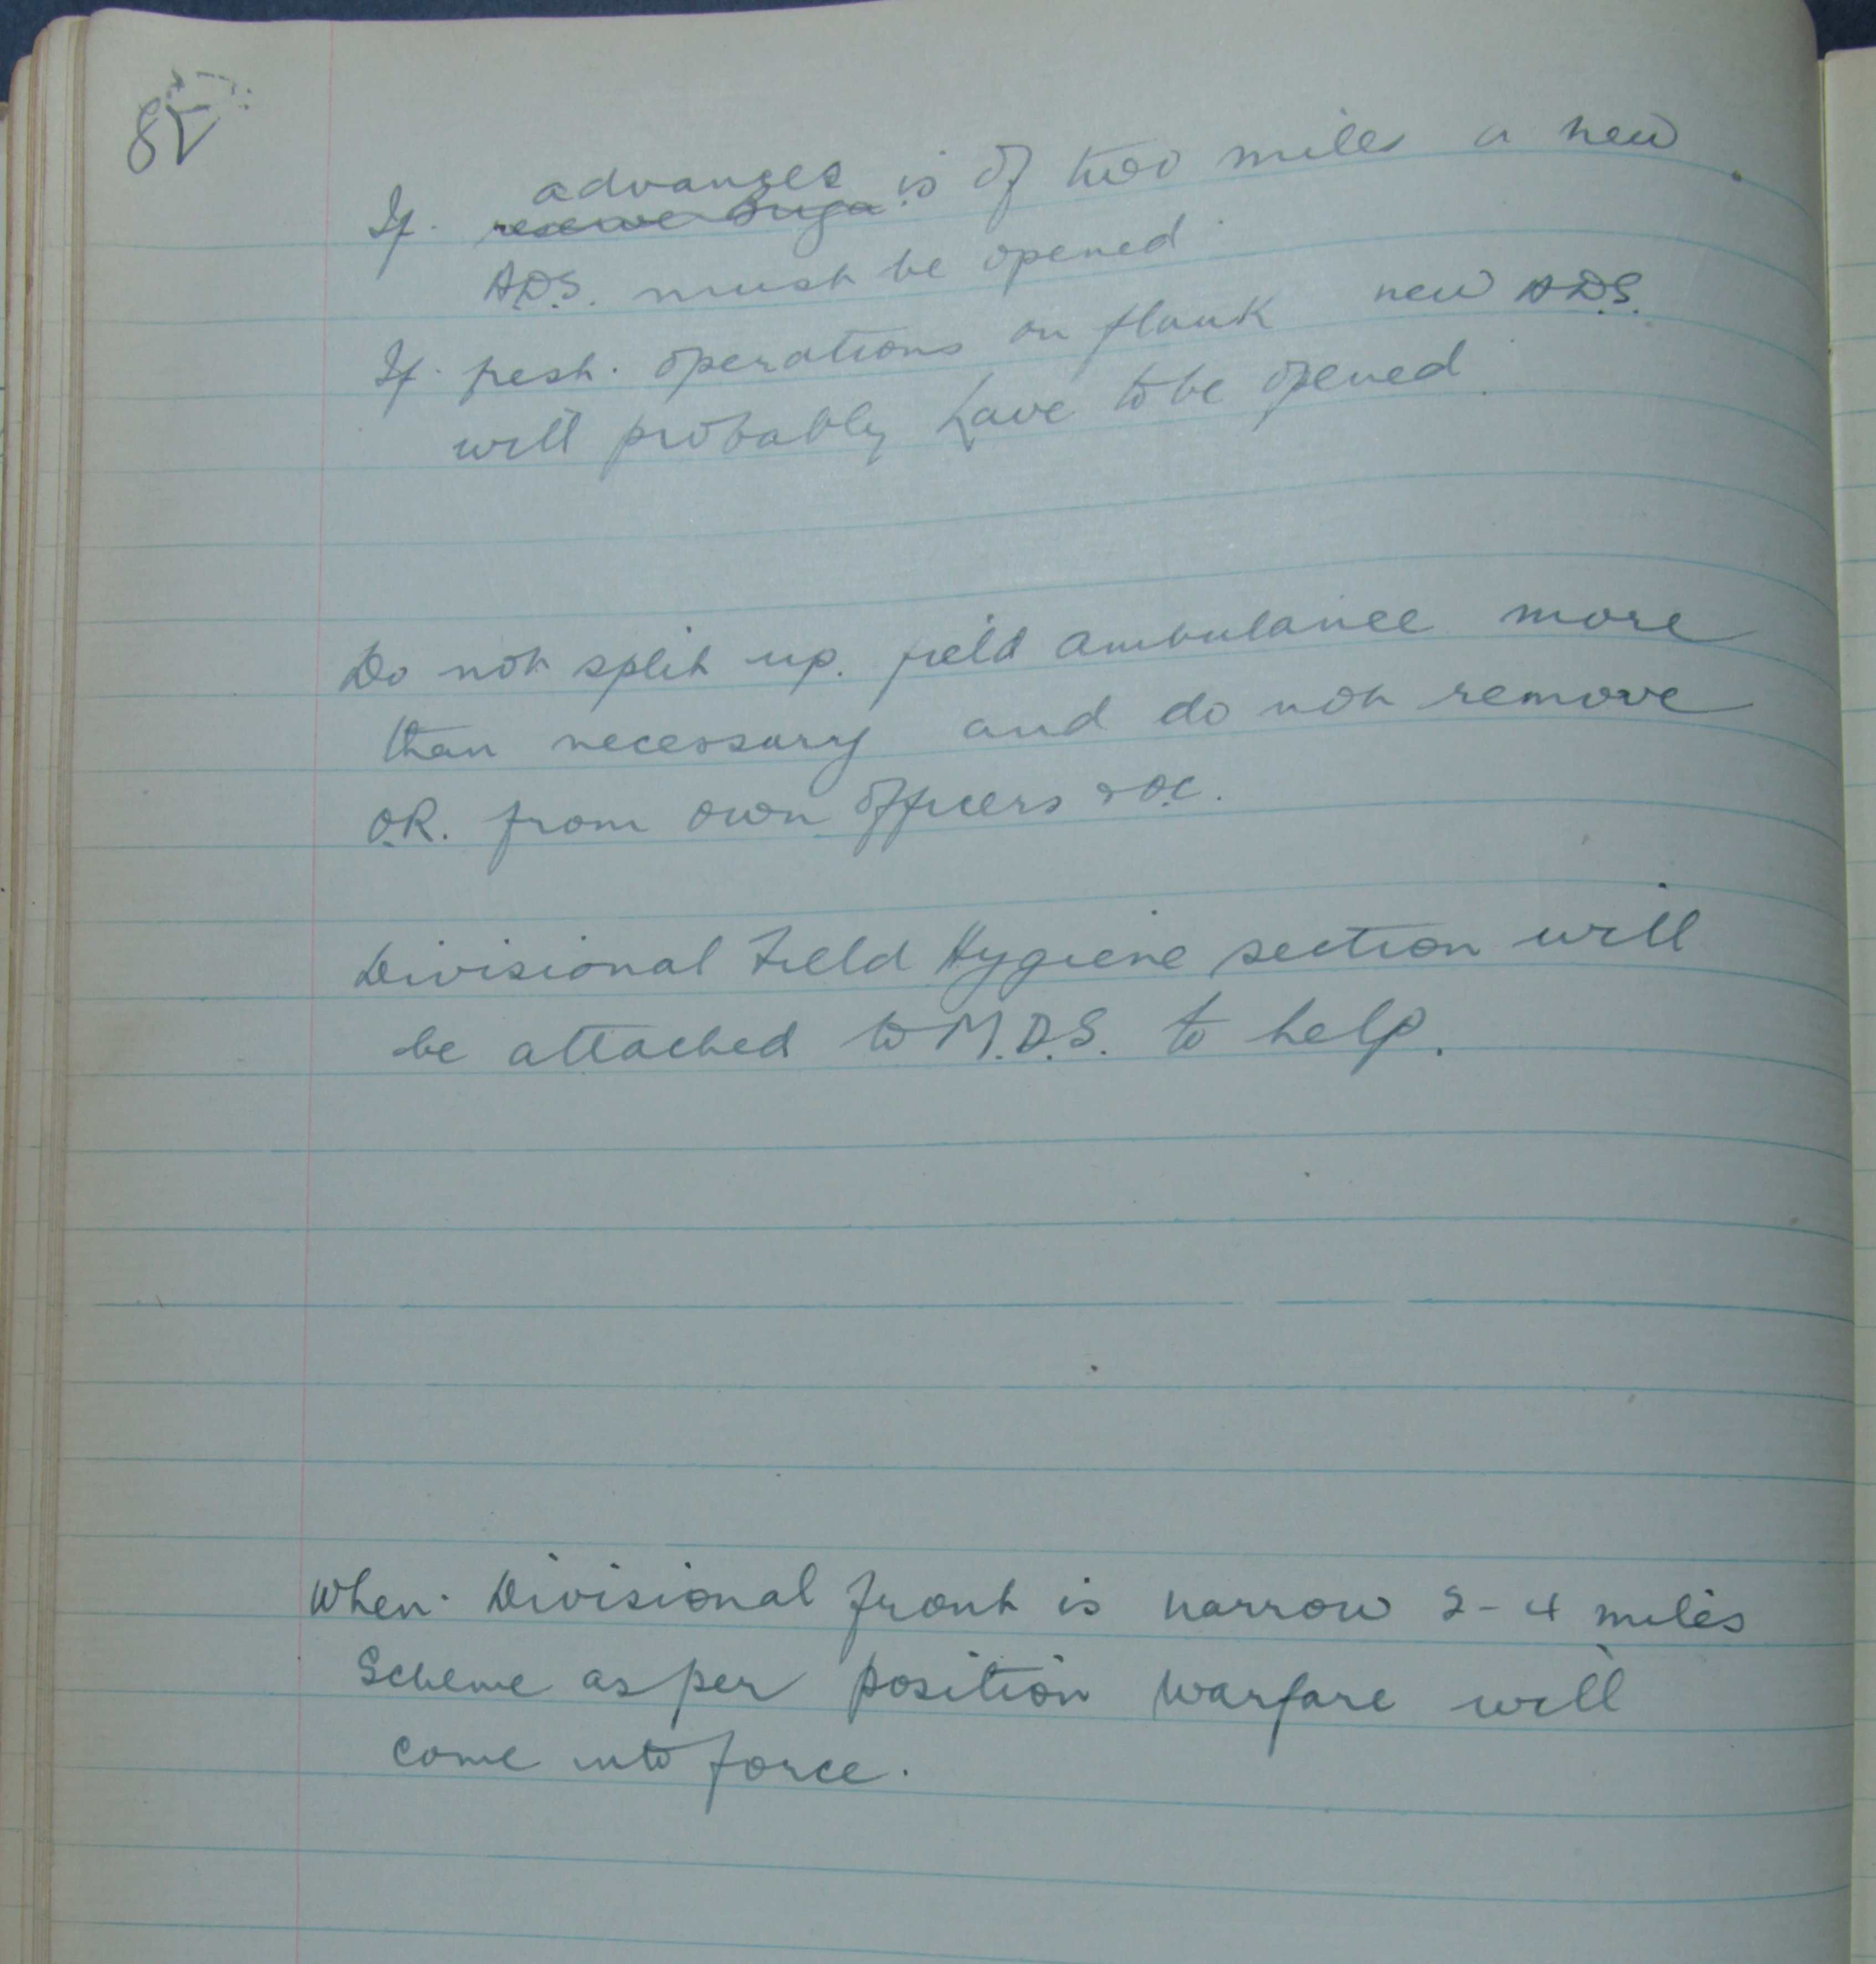 If advances is of two miles a new
A.D.S. must be opened
If fresh operations on flank new A.D.S.
will probably have to be opened
Do not split up field ambulance more
than necessary and do not remove
O.R. from own officers & O.C.
Divisional Field Hygiene section will
be attached to M.D.S. to help.
When Divisional front is narrow 2-4 miles
Scheme as per position warfare will
come into force.